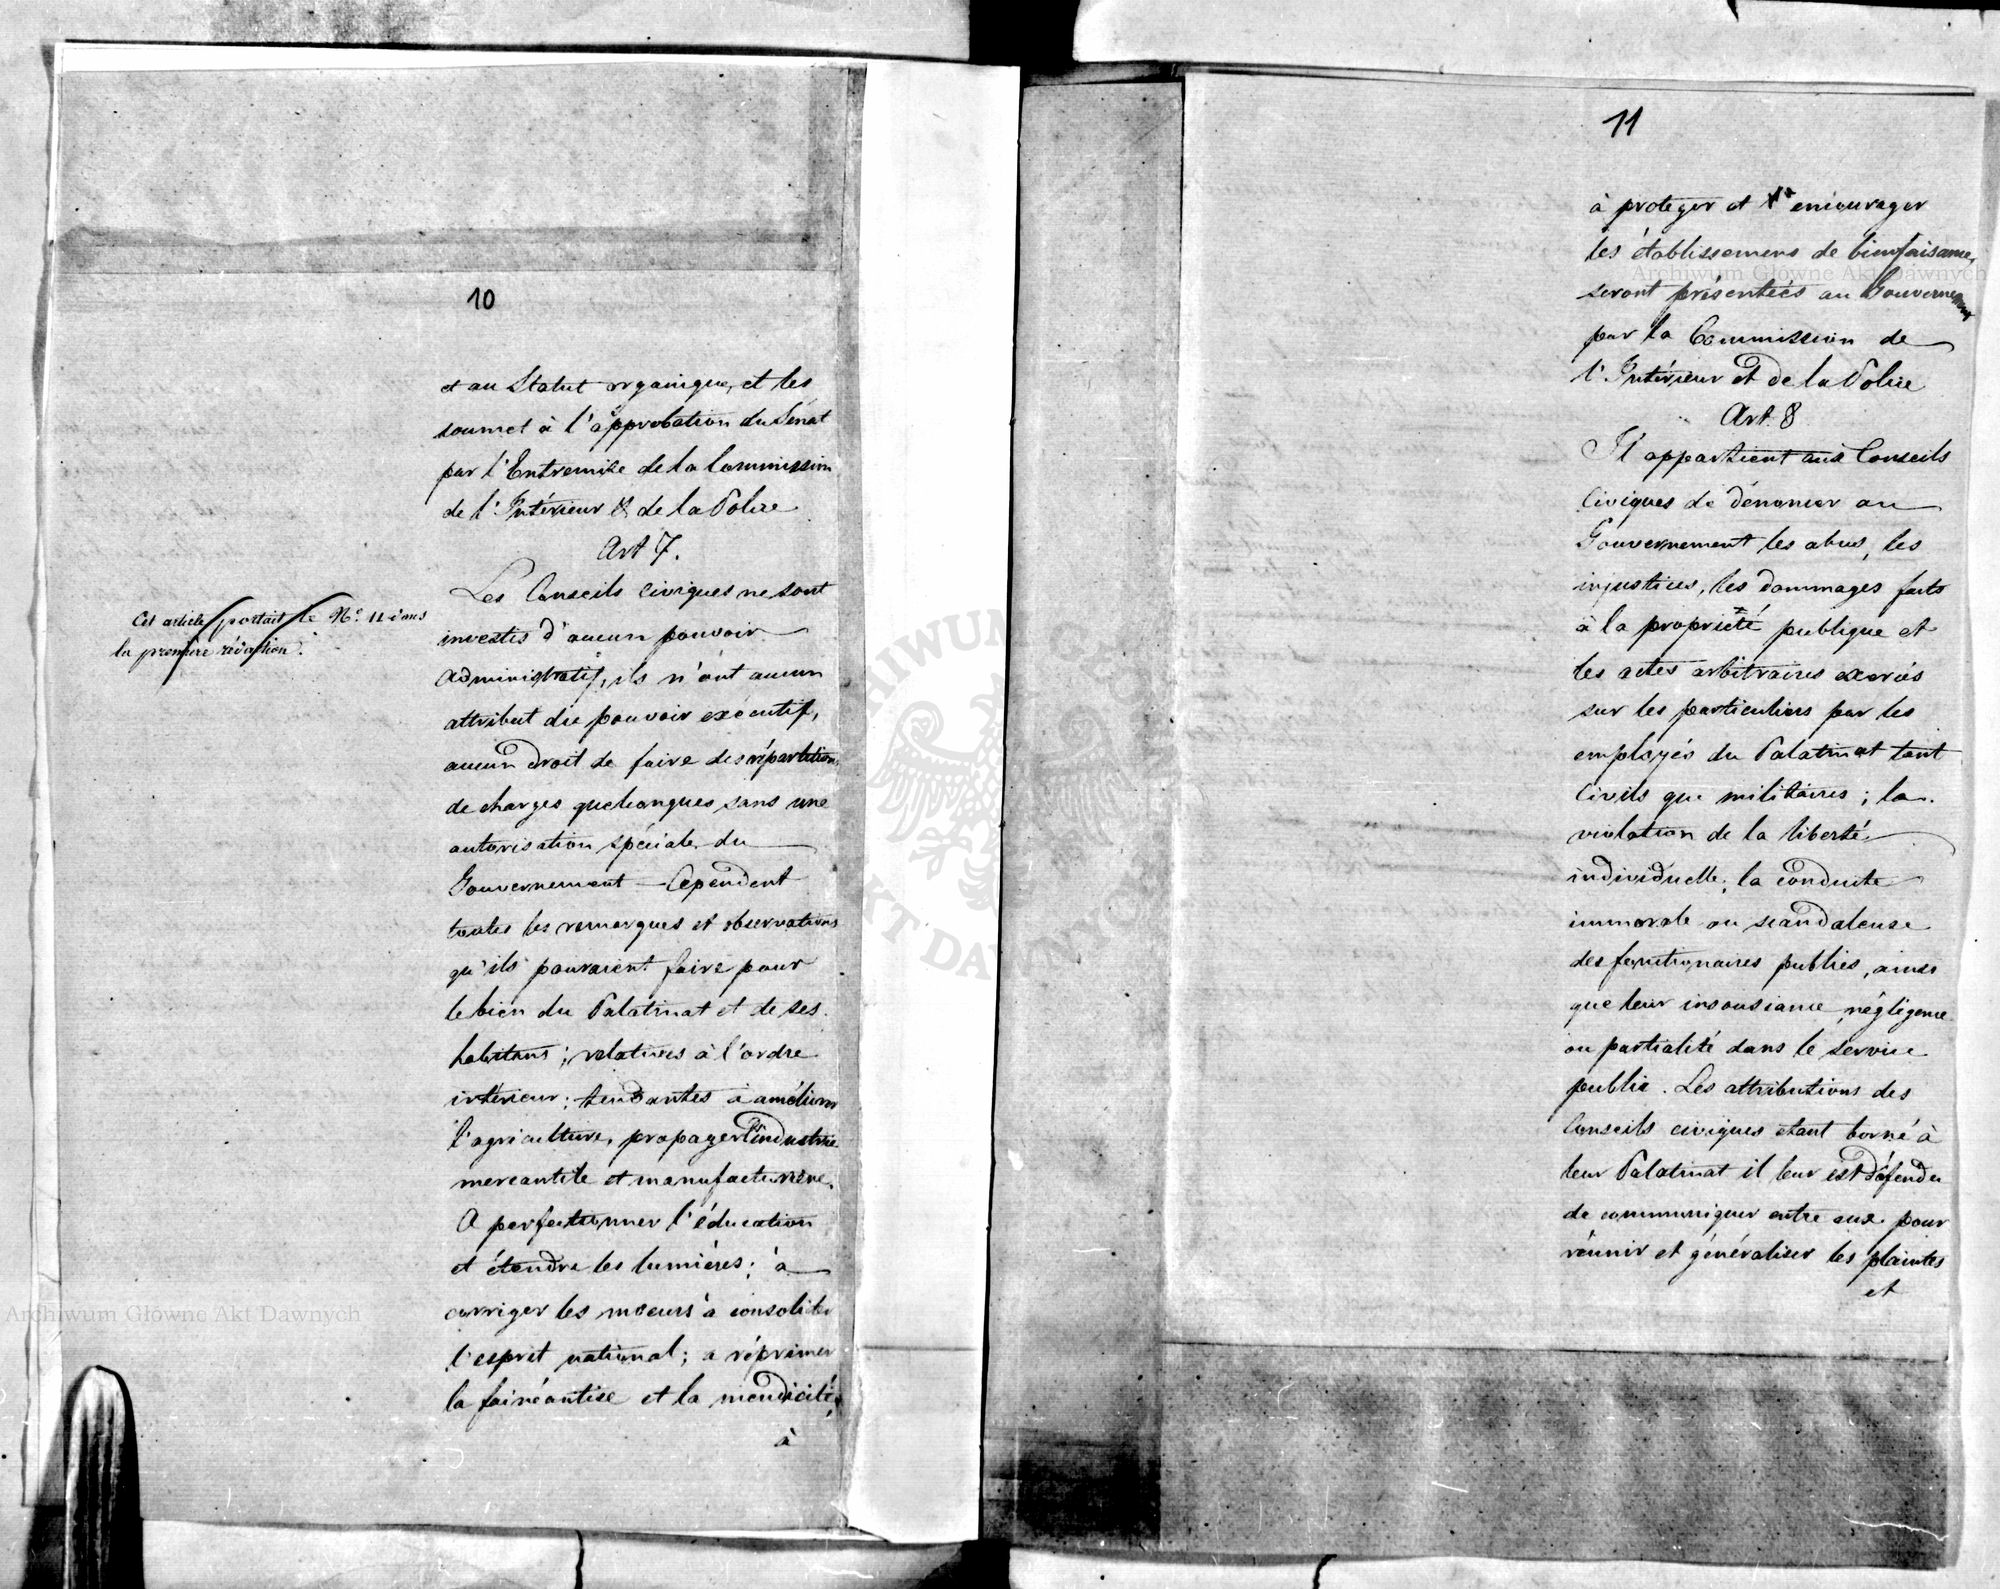 10
et au Statut organique, et les
soumet à l'approbation du Sénat
par l'Entremise de la Commission
de l'Intérieur & de la Police
Art 7.
Les Conseils civiques ne sont
investis d'aucun pouvoir
administratif, ils n'ont aucun
attribut du pouvoir exécutif,
aucun droit de faire des répartitions
de charges quelconques sans une
autorisation spéciale du
Gouvernement — Cependent
toutes les remarques et observations
qu'ils pouraient faire pour
le bien du Palatinat et de ses
habitans ; relatives à l'ordre
intérieur ; tendantes à améliorer
l'agriculture, propager l'industrie
mercantile et manufacturière.
A perfectionner l'éducation
et étendre les lumières ; à
corriger les moeurs à consolider
l'esprit national ; à réprimer
la fainéantise et la mendicité,
à
Cet article portait le N° 11 dans
la première rédaction.
11
à proteger et encourager
les établissemens de bienfaisance,
seront présentées au Gouvernement
par la Commission de
l'Intérieur et de la Police
Art. 8
Il appartient aux Conseils
Civiques de dénoncer au
Gouvernement les abus, les
injustices, les dommages faits
à la propriété publique et
les actes arbitraires exercés
sur les particuliers par les
employés du Palatinat tant
Civils que militaires ; la
violation de la liberté
individuelle ; la conduite
immorale ou scandaleuse
des fonctionaires publics, ainsi
que leur insousiance, négligence
ou partialité dans le service
public. Les attributions des
Conseils civiques étant borné à
leur Palatinat il leur est défendu
de communiquer entre eux pour
réunir et généraliser les plaintes
et
Archiwum Główne Akt Dawnych
Archiwum Główne Akt Dawnych